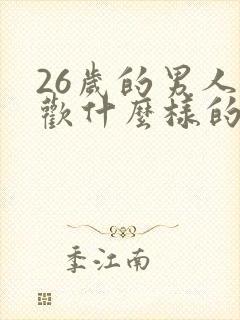 26歲的男人
歡什麼樣的
季江南